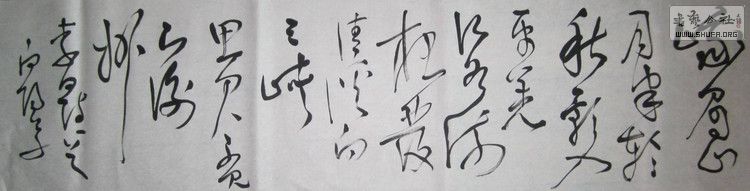 书艺公社
WWW.SHUFA.ORG
峨眉山
月半轮
秋影入
平羌
江水流
夜發
清溪向
三峡
思君不见
下渝
州
李白诗